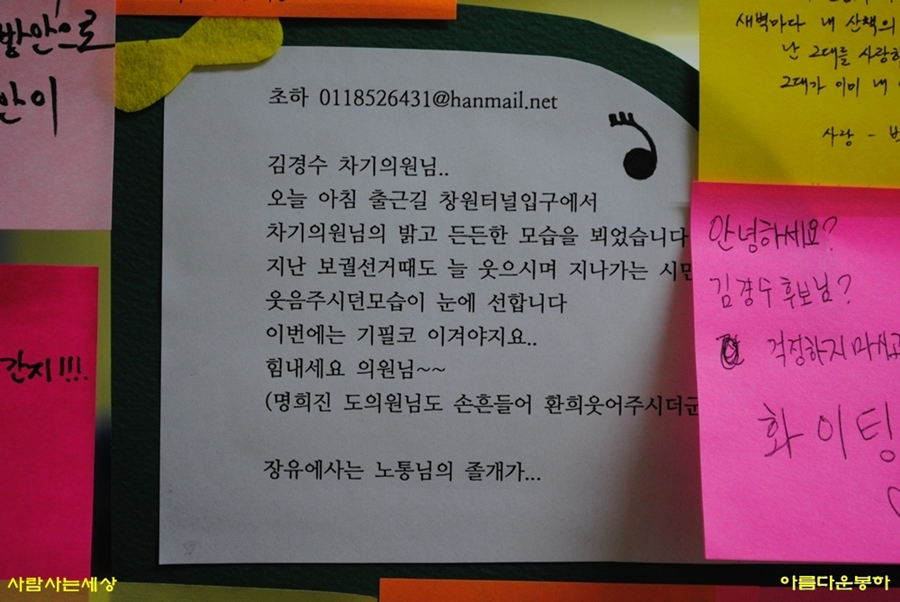 방안으로
안이
간지!!!
초하 0118526431@hanmail.net
김경수 차기의원님..
오늘 아침 출근길 창원터널입구에서
차기의원님의 밝고 든든한 모습을 뵈었습니다
지난 보궐선거때도 늘 웃으시며 지나가는 시민
웃음주시던모습이 눈에 선합니다
이번에는 기필코 이겨야지요..
힘내세요 의원님~~
(명희진 도의원님도 손흔들어 환희웃어주시더군
장유에사는 노통님의 졸개가...
새벽마다 내 산책의
난 그대를 사랑하
그대가 이미 내
사랑 -
안녕하세요?
김경수 후보님?
걱정하지마시고
화이팅
사람사는세상
아름다운봉하